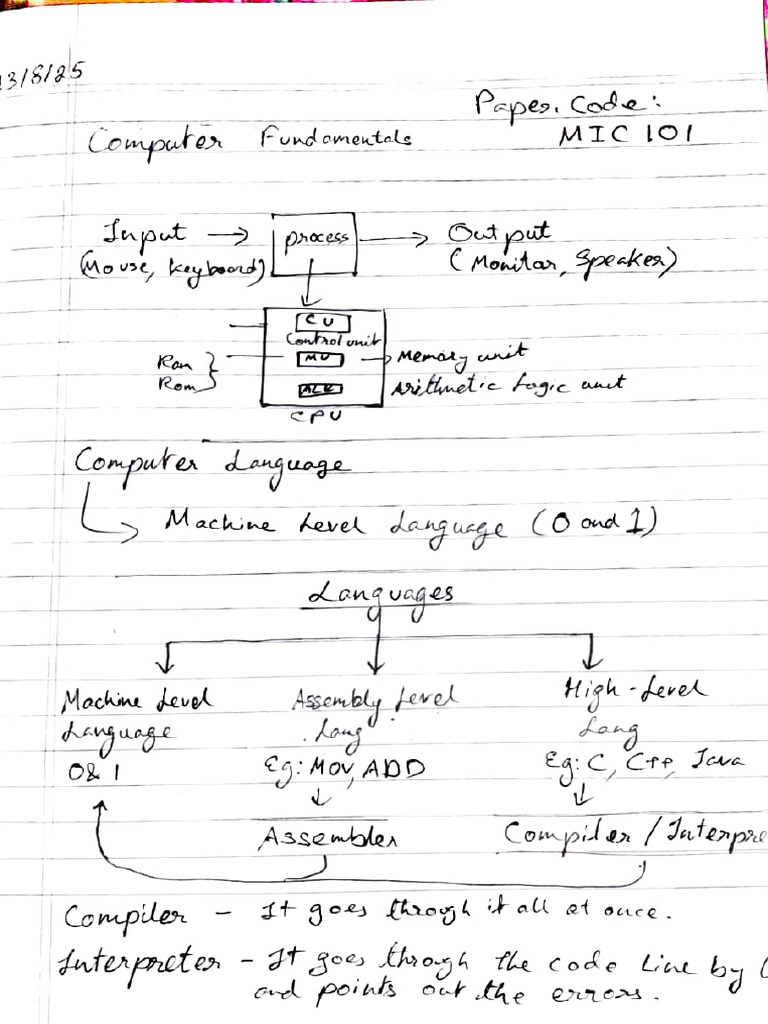 13/8/25
Paper. Code:
MIC 101
Computer Fundamentals
Input → process → Output
(Mouse, keyboard) (Monitor, Speaker)
CU
Control unit
MU → Memory unit
Ram
Rom
ALU Arithmetic Logic unit
CPU
Computer Language
Machine Level Language (0 and 1)
Languages
Machine Level Assembly Level High-Level
Language Lang Lang
0 & 1 Eg: MOV, ADD Eg: C, C++, Java
Assembler Compiler / Interpre
Compiler - It goes through it all at once.
Interpreter - It goes through the code line by
and points out the errors.